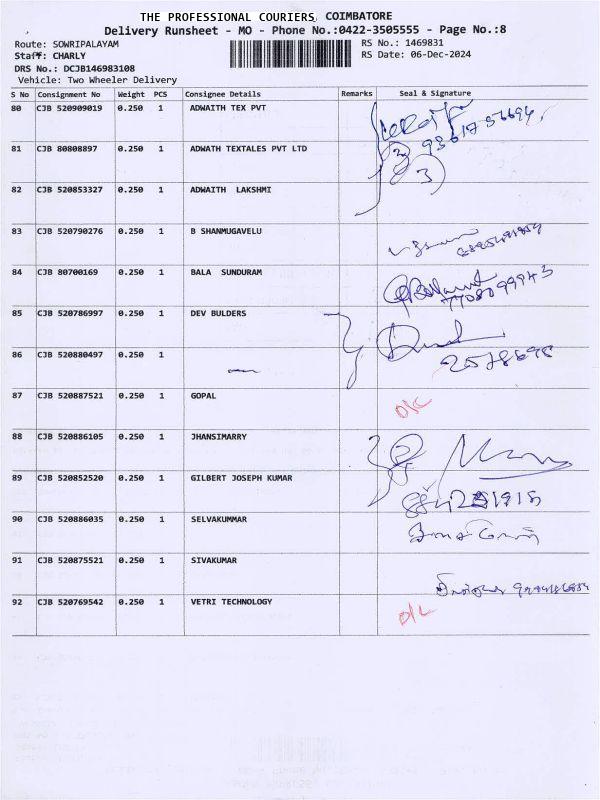 THE PROFESSIONAL COURIERS, COIMBATORE
Delivery Runsheet - MO - Phone No.:0422-3505555 - Page No.:8
Route: SOWRIPALAYAM RS No.: 1469831
Staff: CHARLY RS Date: 06-Dec-2024
DRS No.: DCJB146983108
Vehicle: Two Wheeler Delivery
S No Consignment No Weight PCS Consignee Details Remarks Seal & Signature
80 CJB 520909019 0.250 1 ADWAITH TEX PVT
81 CJB 80808897 0.250 1 ADWATH TEXTALES PVT LTD
3
82 CJB 520853327 0.250 1 ADWAITH LAKSHMI
83 CJB 520790276 0.250 1 B SHANMUGAVELU
84 CJB 80700169 0.250 1 BALA SUNDURAM
7708099943
85 CJB 520786997 0.250 1 DEV BULDERS
86 CJB 520880497 0.250 1
87 CJB 520887521 0.250 1 GOPAL
D/L
88 CJB 520886105 0.250 1 JHANSIMARRY
89 CJB 520852520 0.250 1 GILBERT JOSEPH KUMAR
90 CJB 520886035 0.250 1 SELVAKUMMAR
91 CJB 520875521 0.250 1 SIVAKUMAR
92 CJB 520769542 0.250 1 VETRI TECHNOLOGY
D/L